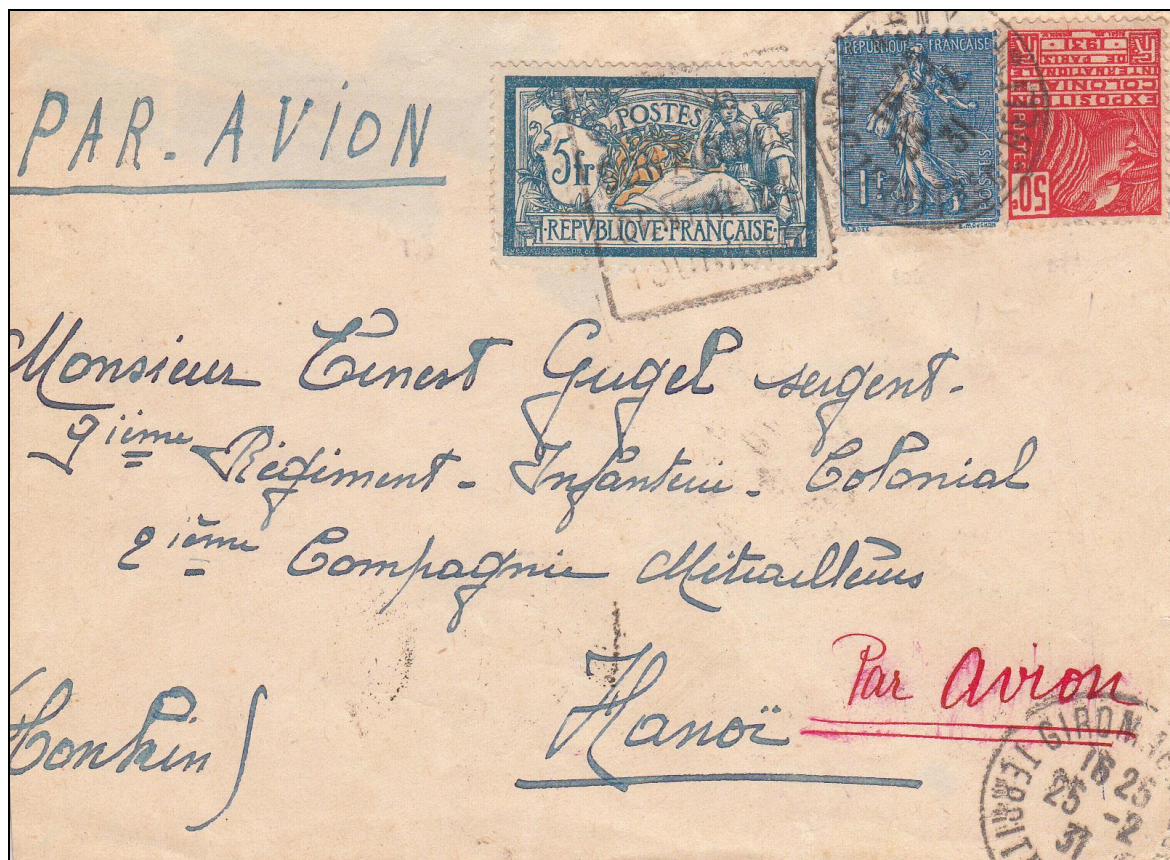 PAR. AVION
POSTES
5fr
RÉPVBLIQVE·FRANÇAISE
REPUBLIQUE FRANÇAISE
1F
POSTES
EXPOSITION
COLONIALE
INTERNATIONALE
DE PARIS
1931
POSTES
50c
Monsieur Ernest Gugel sergent-
9ième Régiment - Infanterie - Colonial
2ième Compagnie Mitrailleurs
Hanoï
(Tonkin)
Par Avion
GIROMAGNY
TERRIT
18 25
25 -2
31